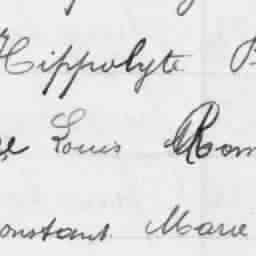 Hippolyte
Louis Rom
onstant Marie